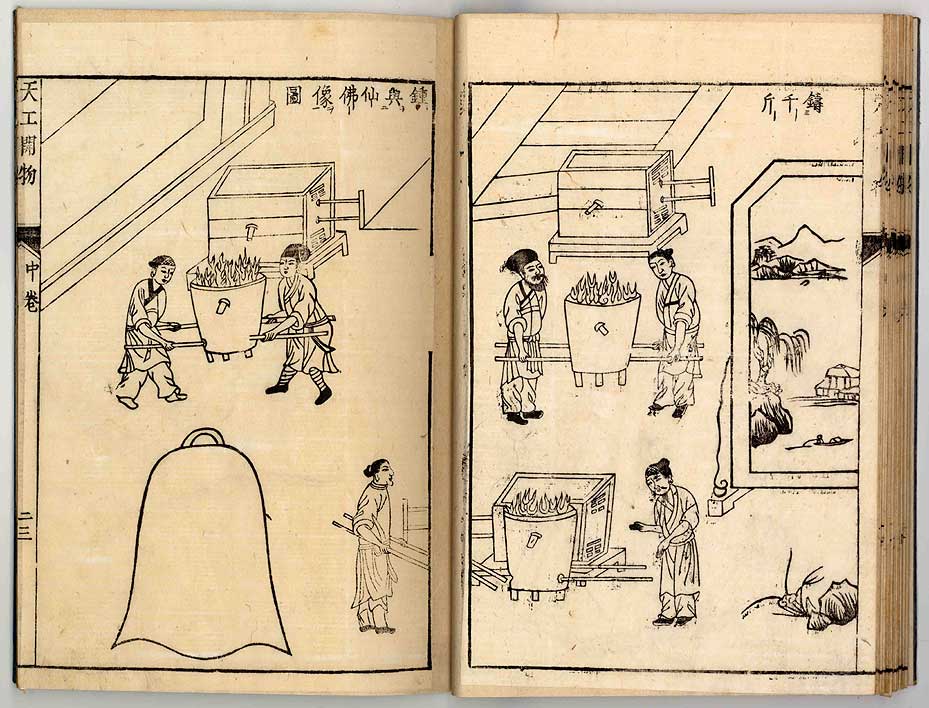 鑄千斤
鍾與仙佛像圖
天工開物
中卷
二三